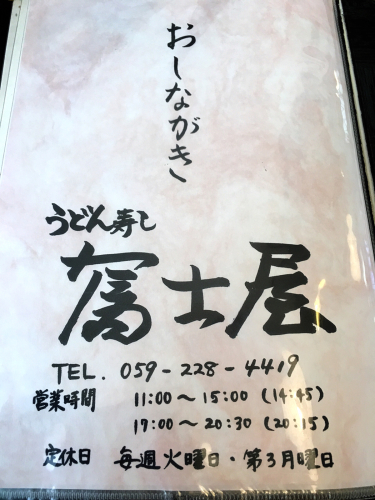 おしながき
うどん寿し
冨士屋
TEL. 059-228-4419
営業時間 11:00～15:00 (14:45)
17:00～20:30 (20:15)
定休日 毎週火曜日・第3月曜日